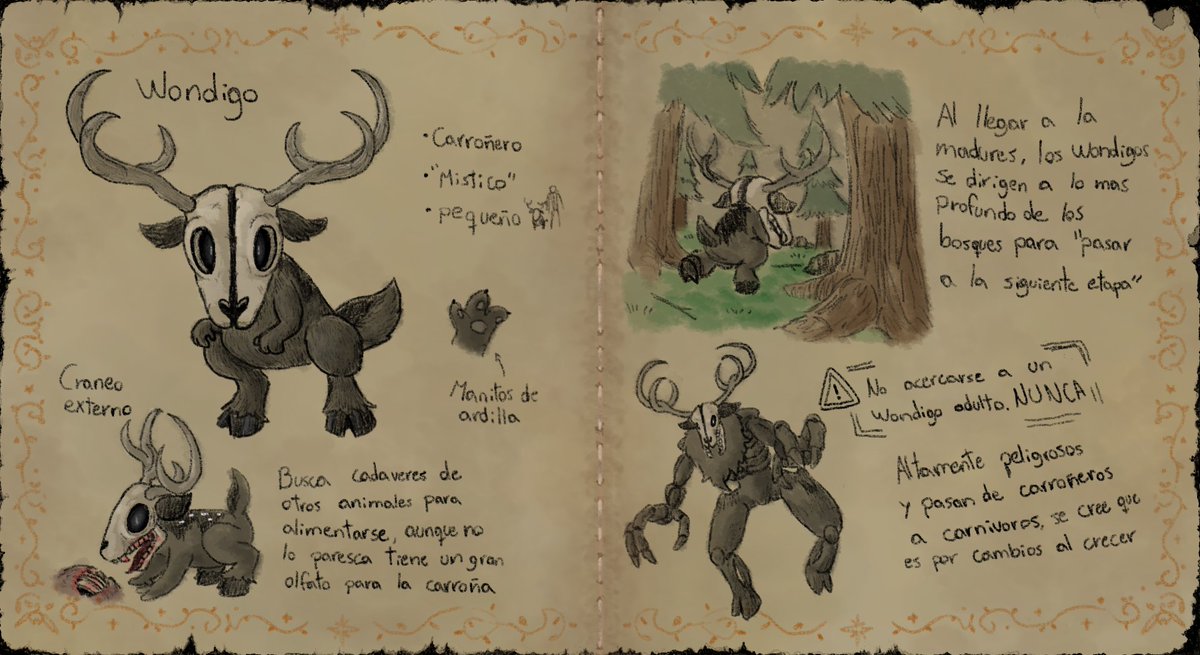 Wondigo
• Carroñero
• "Mistico"
• pequeño
Manitos de
ardilla
Craneo
externo
Busca cadaveres de
otros animales para
alimentarse, aunque no
lo paresca tiene un gran
olfato para la carroña
Al llegar a la
madures, los wondigos
se dirigen a lo mas
profundo de los
bosques para "pasar
a la siguiente etapa"
No acercarse a un
wondigo adulto. NUNCA!!
Altamente peligrosos
y pasan de carroñeros
a carnivoros, se cree que
es por cambios al crecer